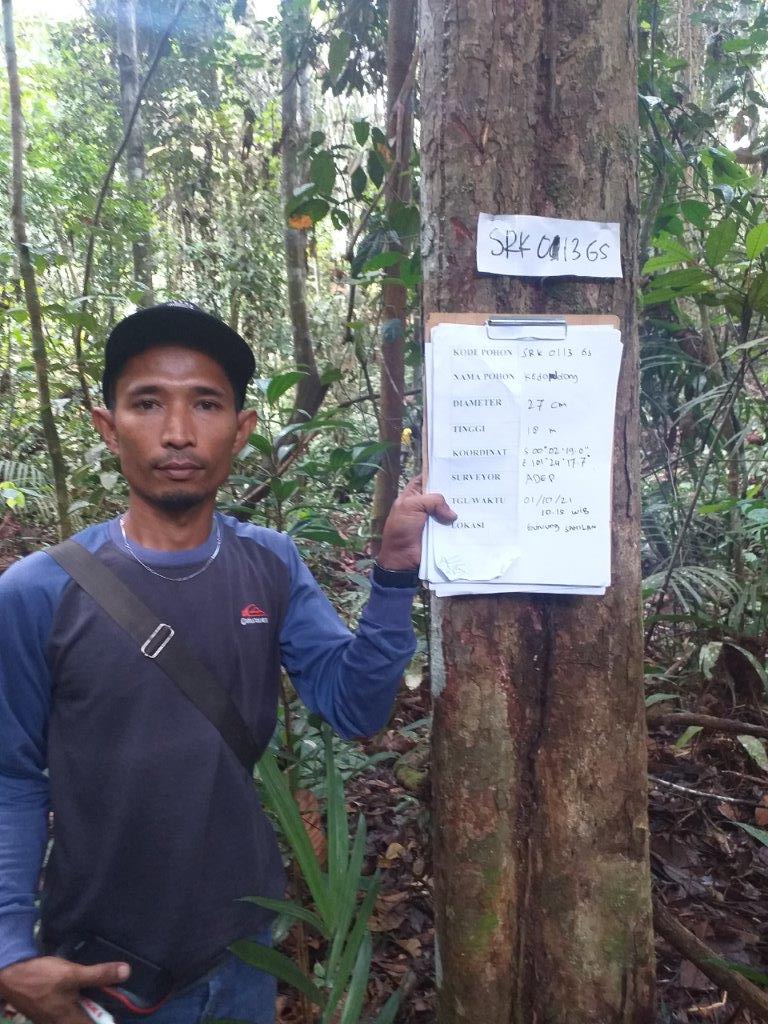 SRK 0113 GS
KODE POHON SRK 0113 GS
NAMA POHON Kedondong
DIAMETER 27 cm
TINGGI 18 m
KOORDINAT S 00° 02' 19.0"
E 101° 24' 17.7"
SURVEYOR ADEP
TGL/WAKTU 01/10/21
10.15 WIB
LOKASI GUNUNG SAHILAN